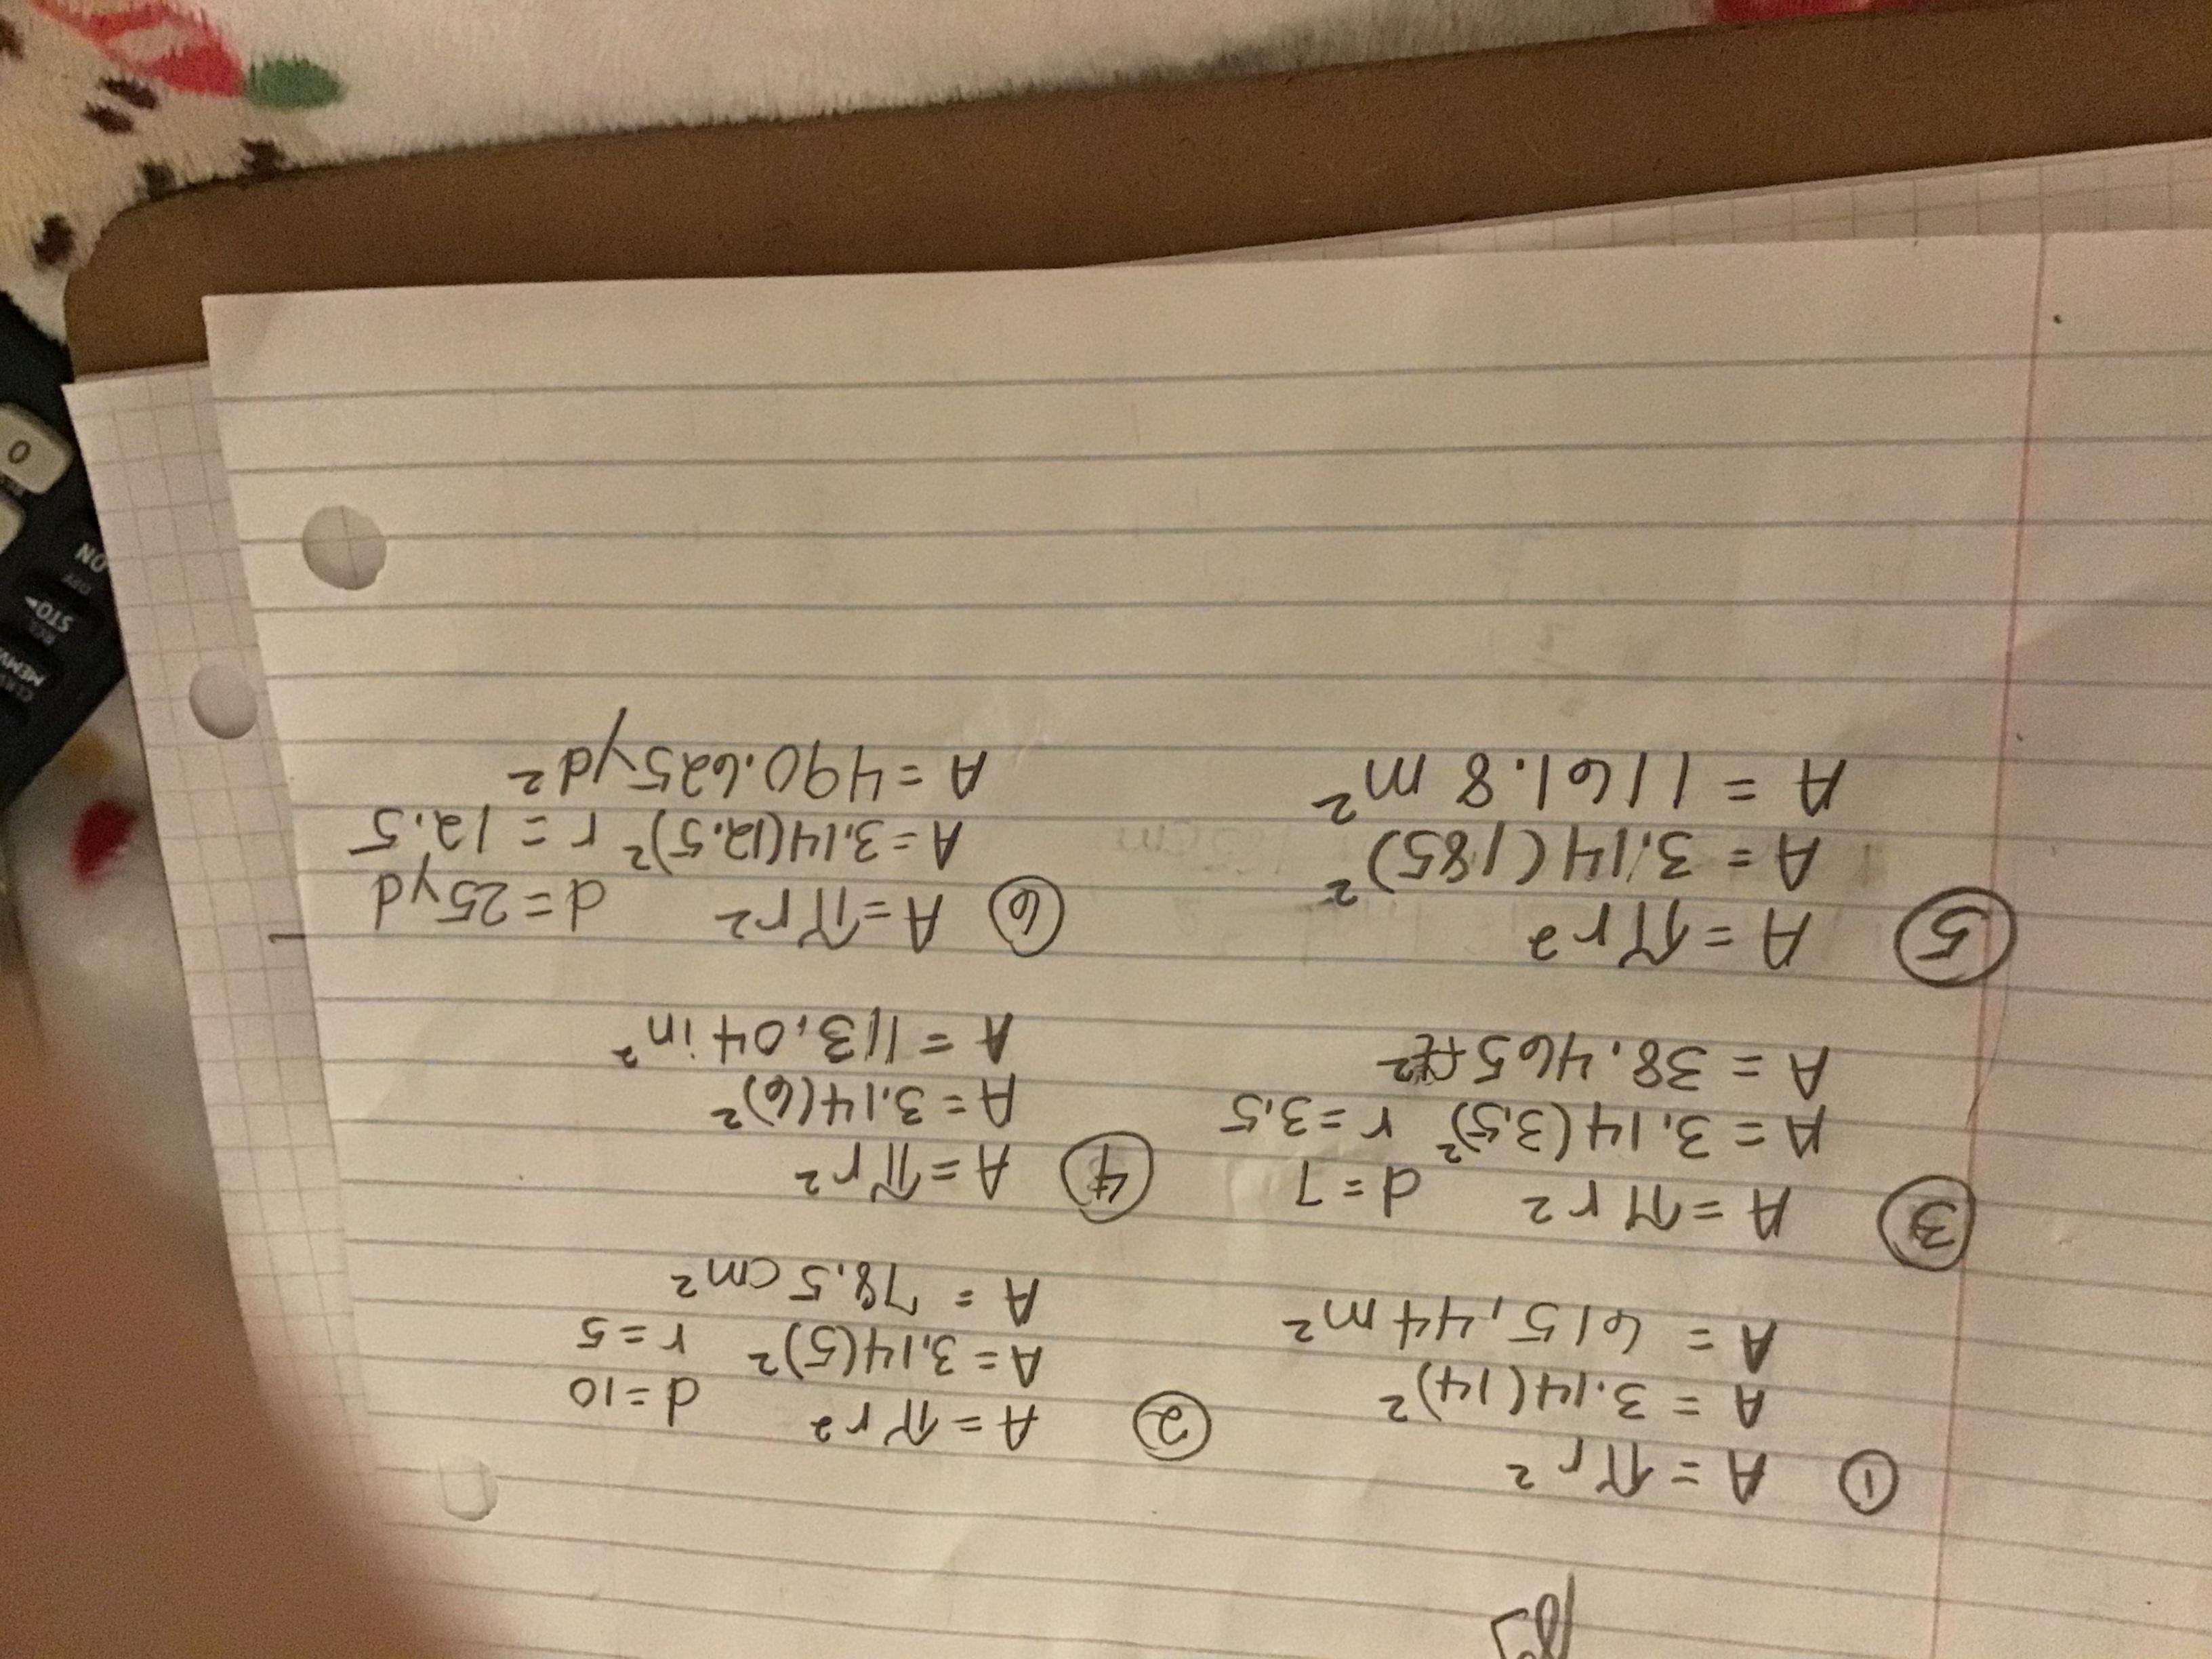 ① A = πr²
A = 3.14(14)²
A = 615.44 m²
② A = πr² d=10
A = 3.14(5)² r=5
A = 78.5 cm²
③ A = πr² d=7
A = 3.14(3.5)² r=3.5
A = 38.465 ft²
④ A = πr²
A = 3.14(6)²
A = 113.04 in²
⑤ A = πr²
A = 3.14(185)²
A = 1161.8 m²
⑥ A = πr² d=25yd
A = 3.14(12.5)² r = 12.5
A = 490.625yd²
OFF
ON
STO▸
0